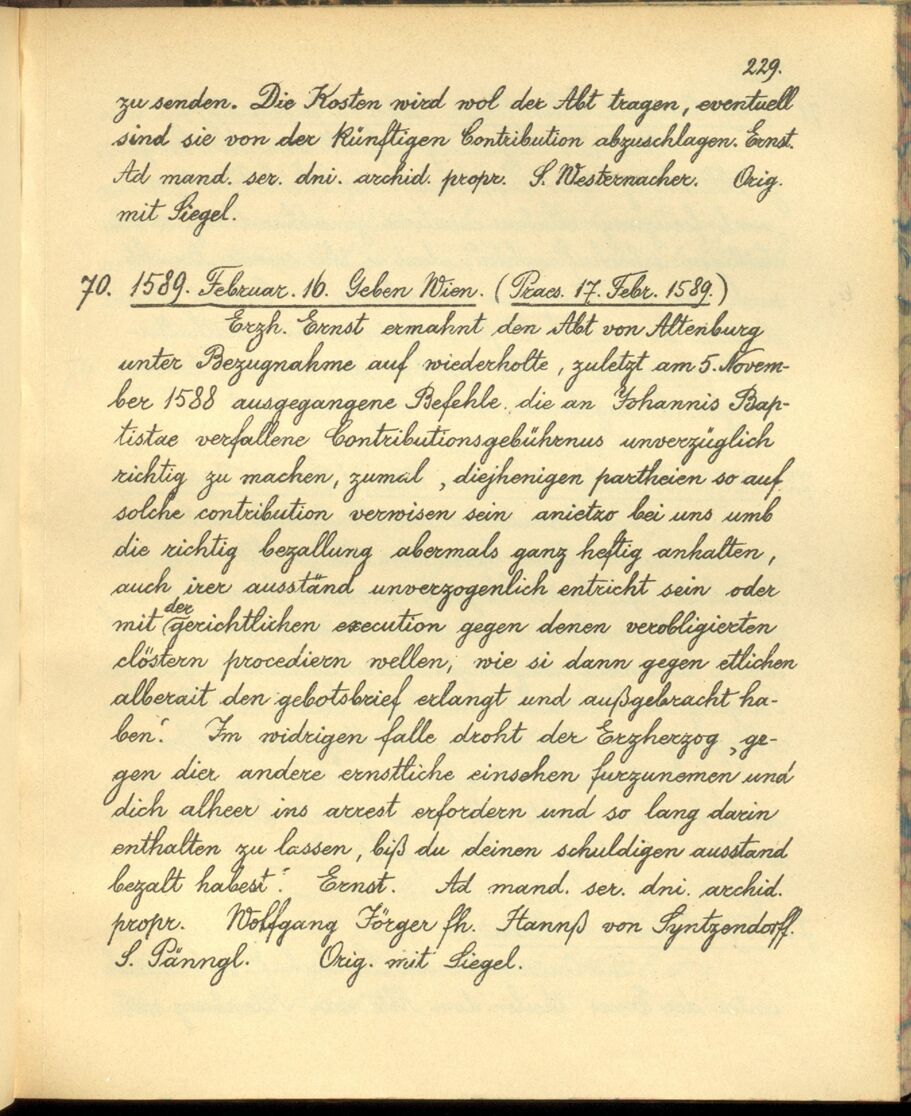 229.
zu senden. Die Kosten wird wol der Abt tragen, eventuell
sind sie von der künftigen Contribution abzuschlagen. Ernst.
Ad mand. ser. dni. archid. propr. S. Westernacher. Orig.
mit Siegel.
70. 1589. Februar. 16. Geben Wien. (Praes. 17. Febr. 1589.)
Erzh. Ernst ermahnt den Abt von Altenburg
unter Bezugnahme auf wiederholte, zuletzt am 5. Novem-
ber 1588 ausgegangene Befehle die an Johannis Bap-
tistae verfallene Contributionsgebührnus unverzüglich
richtig zu machen, zumal ‚diejhenigen partheien so auf
solche contribution verwisen sein anietzo bei uns umb
die richtig bezallung abermals ganz heftig anhalten,
auch irer ausständ unverzogenlich entricht sein oder
mit der gerichtlichen execution gegen denen verobligierten
clöstern procediern wellen, wie si dann gegen etlichen
alberait den gebotsbrief erlangt und außgebracht ha-
ben‘. Im widrigen falle droht der Erzherzog ‚ge-
gen dier andere ernstliche einsehen furzunemen und
dich alheer ins arrest erfordern und so lang darin
enthalten zu lassen, biß du deinen schuldigen ausstand
bezalt habest‘. Ernst. Ad mand. ser. dni. archid.
propr. Wolfgang Jörger fh. Hannß von Syntzendorff.
S. Pänngl. Orig. mit Siegel.